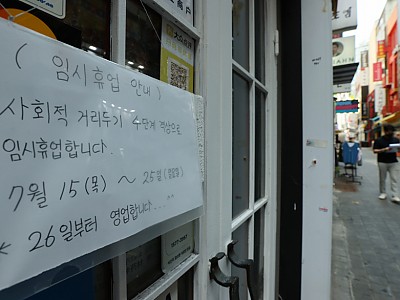 ( 임시휴업 안내 )
사회적 거리두기 4단계 격상으로
임시휴업합니다.
7월 15(목) ~ 25일(일요일)
* 26일부터 영업합니다....^^